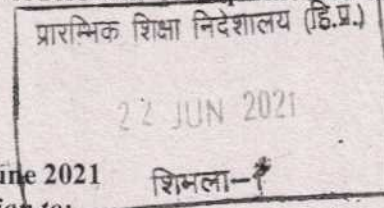 प्रारम्भिक शिक्षा निदेशालय (हि.प्र.)
22 JUN 2021
ine 2021
शिमला-1